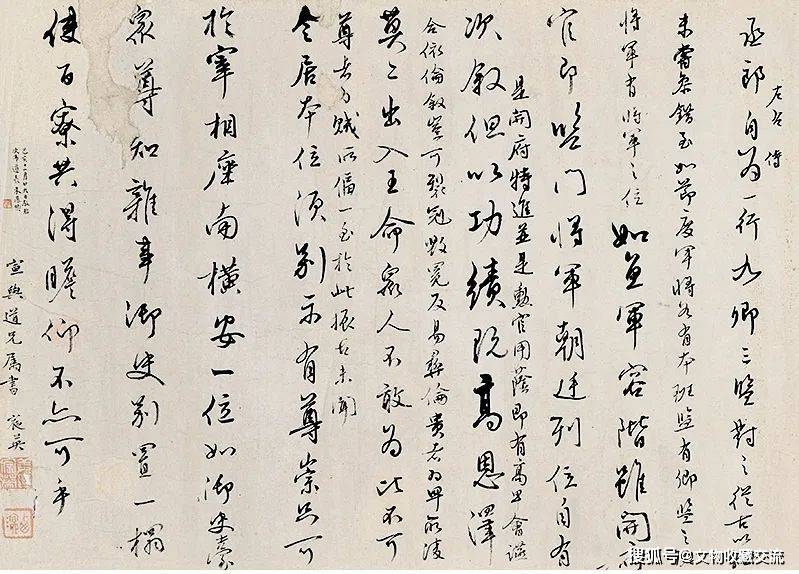 丞郎自為一行九卿三監對之從古以
未嘗參錯至如節度軍將各有本班監有卿監之
將軍有將軍之位如魚軍容階雖開府
官即監門將軍朝廷列位自有
是開府特進並是勳官用蔭即有高卑會讌
次敘但以功績既高恩澤
合依倫敘豈可裂冠毀冕反易彝倫貴者為卑所凌
莫二出入王命眾人不敢為比不可
尊者為賊所偪一至於此振古未聞
令居本位須別示有尊崇只可
於宰相座南橫安一位如御史臺
眾尊知雜事御史別置一榻
使百寮共得瞻仰不亦可乎
道兄屬書
搜狐号@文物收藏交流